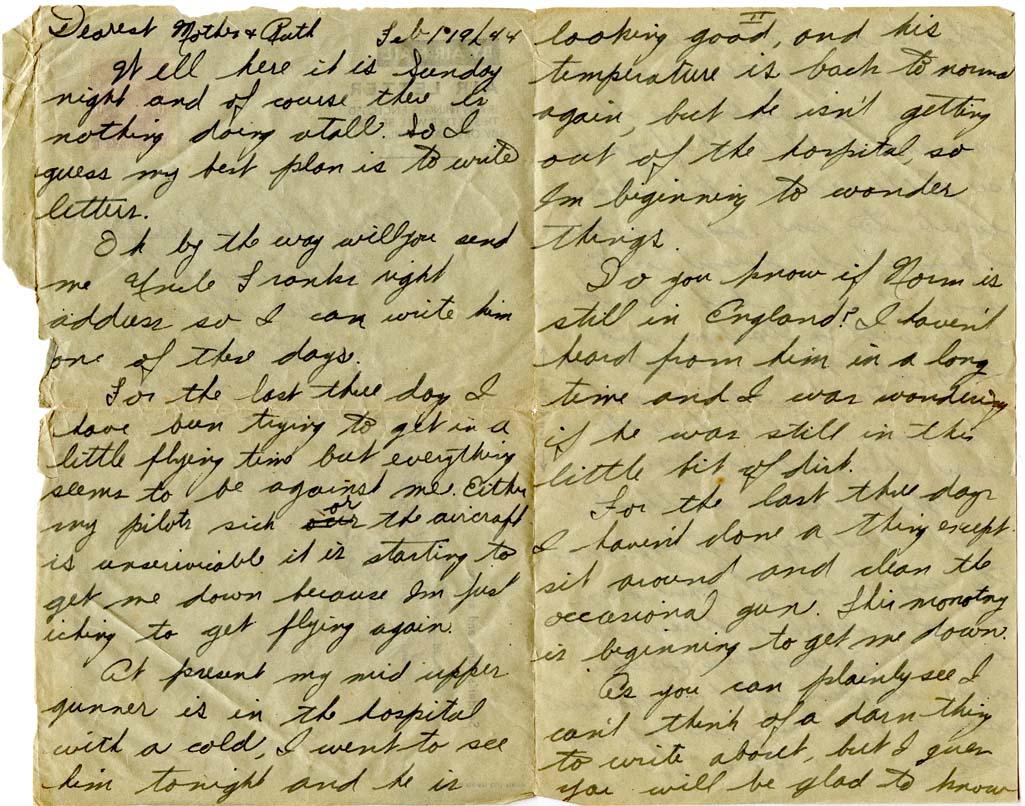 Dearest Mother & Ruth Feb 1st 19/44
Well here it is Sunday
night and of course there is
nothing doing atall. So I
guess my best plan is to write
letters.
Oh by the way will you send
me Uncle Franks right
address so I can write him
one of these days.
For the last three day I
have been trying to get in a
little flying time but everything
seems to be against me. Either
my pilots sick or the aircraft
is unserivicable it is starting to
get me down because Im just
iching to get flying again.
At present my mid upper
gunner is in the hospital
with a cold, I went to see
him tonight and he is
II
looking good, and his
temperature is back to normal
again, but he isn't getting
out of the hospital, so
Im beginning to wonder
things.
Do you know if Norm is
still in England? I haven't
heard from him in a long
time and I was wondering
if he was still in this
little bit of dirt.
For the last three days
I haven't done a thing except
sit around and clean the
occasional gun. This monotny
is beginning to get me down.
As you can plainly see I
can't think of a darn thing
to write about, but I guess
you will be glad to know